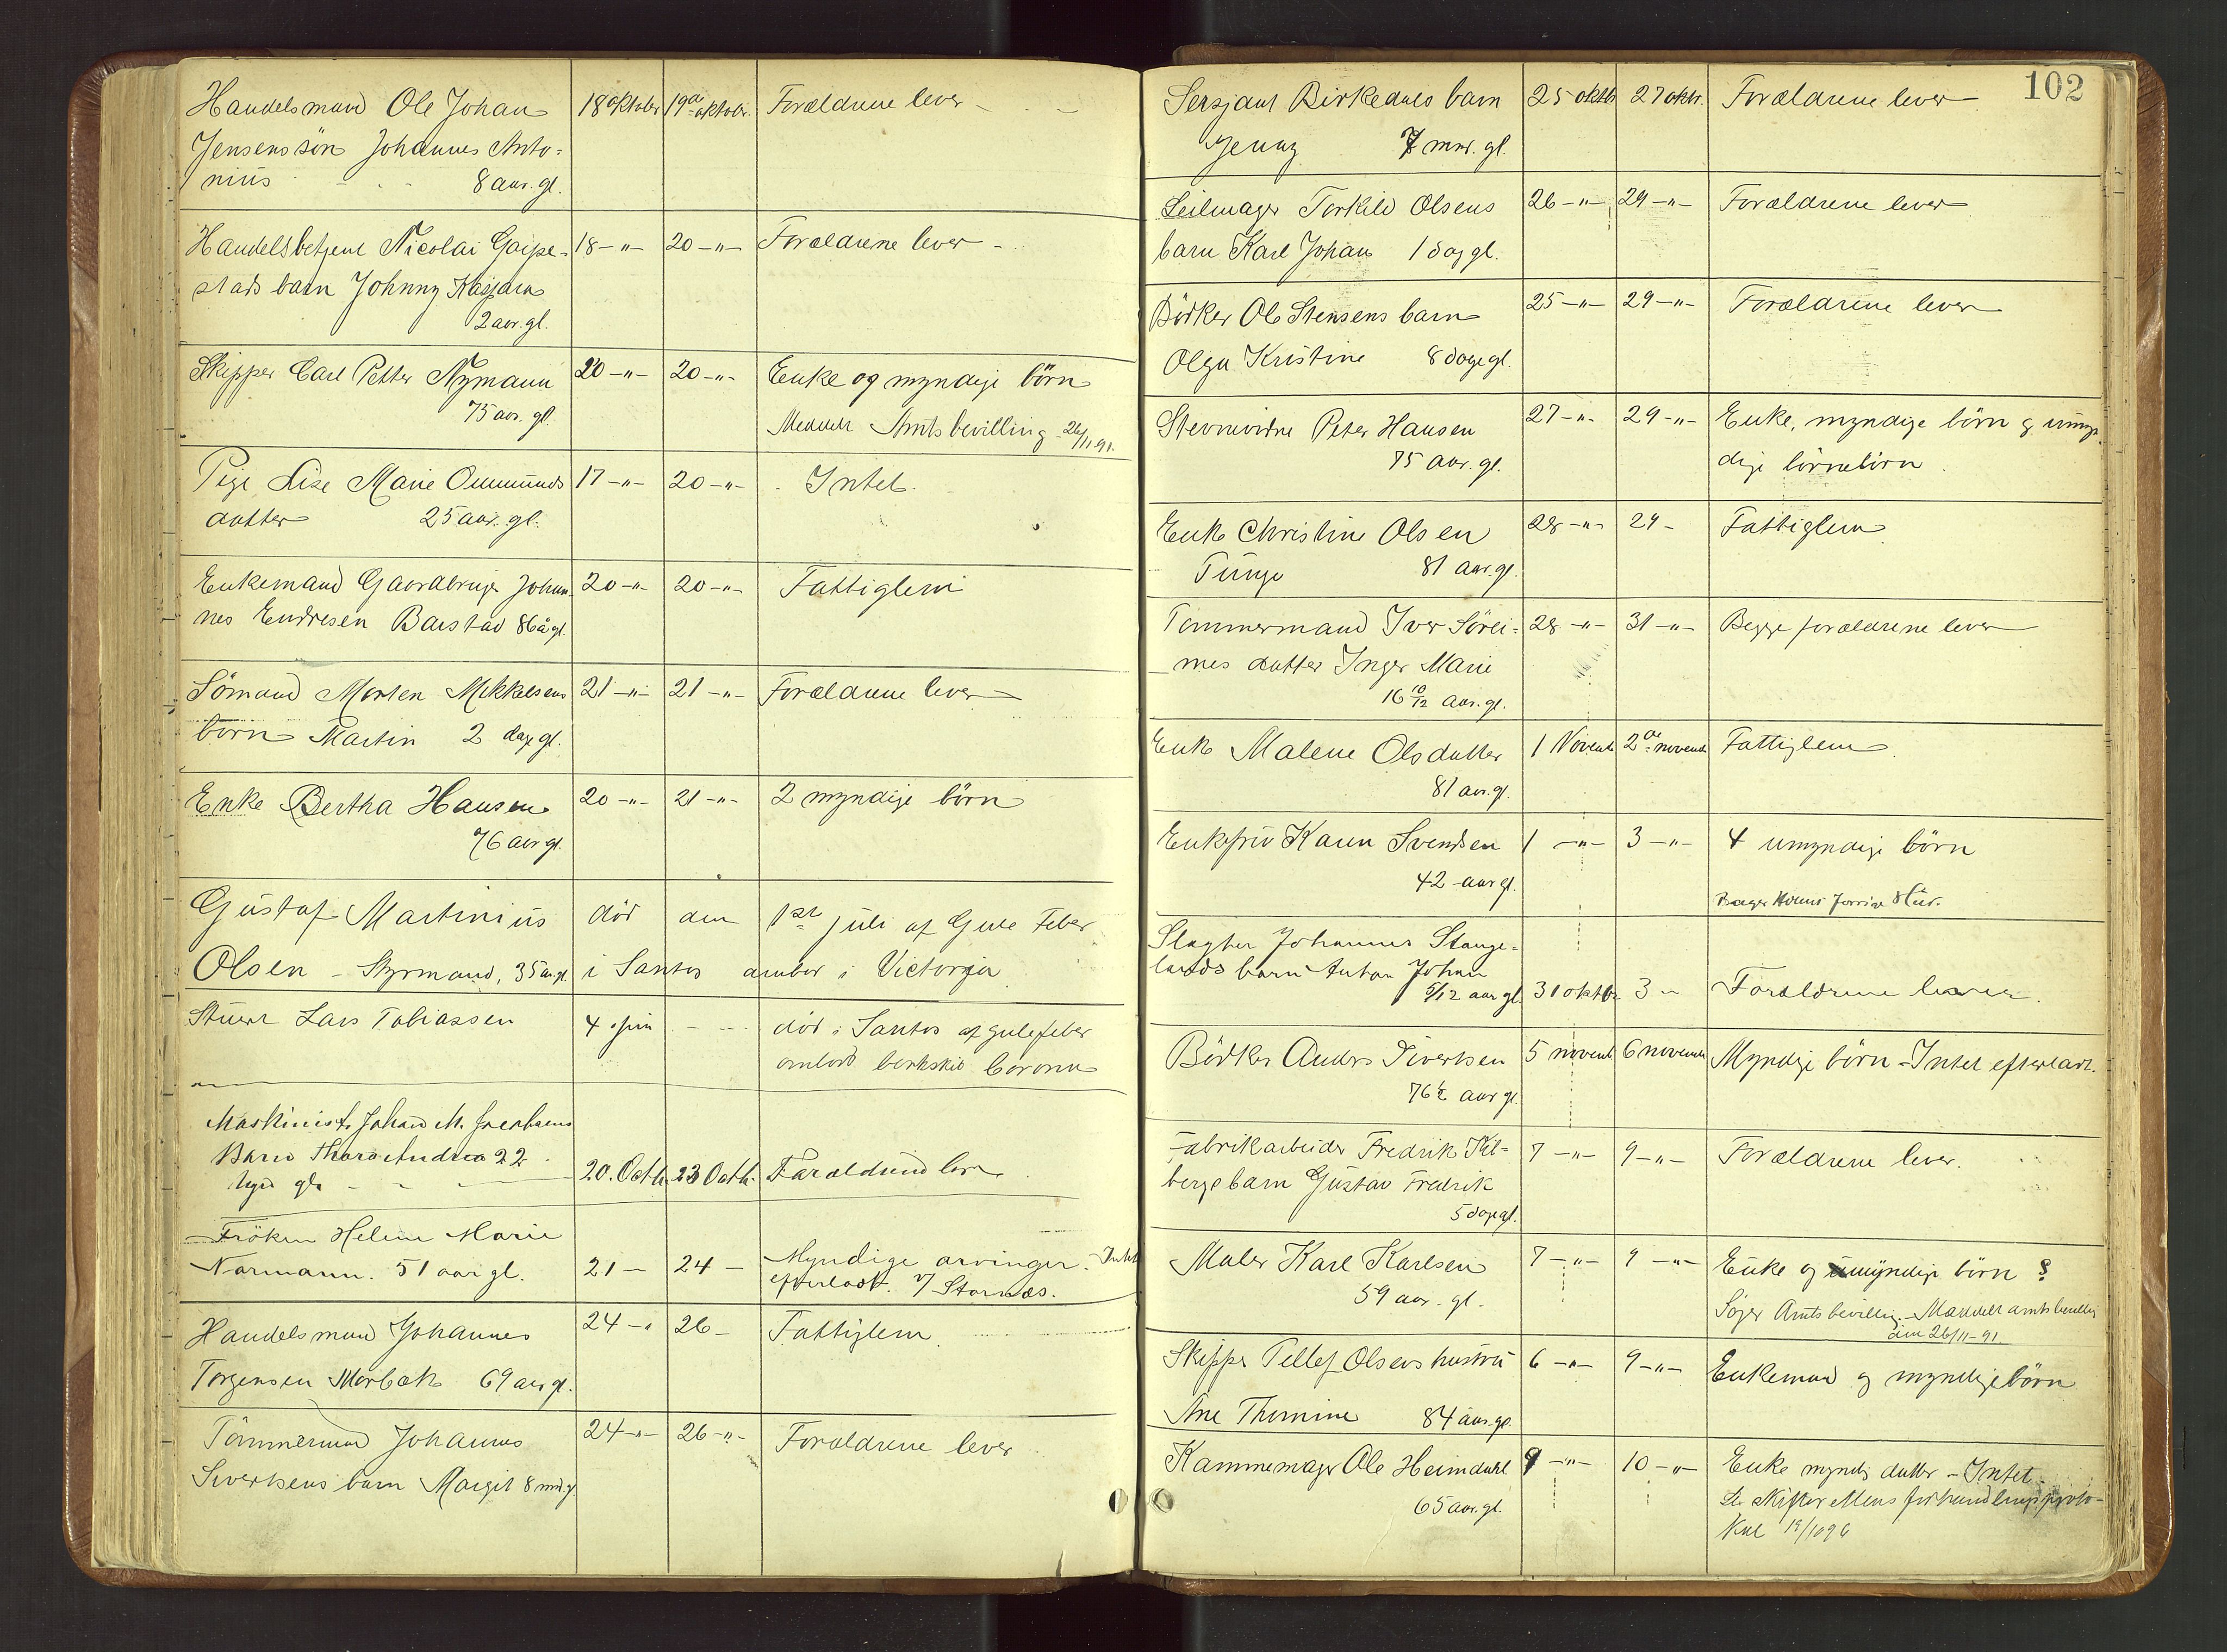 Handelsmand Ole Johan 18 oktober 19de oktobr. Forældrene lever
Jensens søn Johannes Anto=
nius 8 aar. gl.
Handelsbetjent Nicolai Gaipe- 18 -"- 20 -"- Forældrene lever -
stads barn Johnny
2 aar. gl.
Skipper Carl Petter Nymann 20 -"- 20 -"- Enke og myndige børn
75 aar. gl. Meddelt Amtsbevilling 26/11 91.
Pige Lise Marie Ommunds 17 -"- 20 -"- Intet.
datter 25 aar. gl.
Enkemand Gaardbruger Johan- 20 -"- 20 -"- Fattiglem
nes Endresen Barstad 86 å gl.
Sömand Morten Mikkelsens 21 -"- 21 -"- Forældrene lever
barn Martin 2 dage gl.
Enke Bertha Hansen 20 -"- 21 -"- 2 myndige børn
76 aar gl.
Gustaf Martinius död den 1ste juli af Gule Feber
Olsen - Styrmand, 35 aar gl. i Santos ombor i Victoria
Stuert Lars Tobiassen 4 juni - - död i Santos af gulefeber
ombord barkskib Corona
Maskinist Johan M. Jacobsens
Barn Thora Andrea 22
Uger gl. 20. Octb. 23 Octb. Forældrene lever
Fröken Helene Marie
Normann. 51 aar gl. 21 - 24 - Myndige arvinger. Intet
efterladt. v/ Stornæs.
Handelsmand Johannes 24 -" 26 - Fattiglem
Torgersen Morbæk 69 aar gl.
Tömmermand Johannes 24 -"- 26 -"- Forældrene lever
Sivertsens barn Margit 8 md. gl.
102
Sersjant Birkedals barn 25 oktbr 27 oktr. Forældrene lever
Jenny 7 mnr. gl.
Seilmager Torkild Olsens 26 -"- 29 -"- Forældrene lever
barn Karl Johan 1 dag gl.
Bödker Ole Stensens barn 25 -"- 29 -"- Forældrene lever
Olga Kristine 8 dage gl.
Stevnevidne Peter Hansen 27 -"- 29 -"- Enke, myndige börn & umyn
75 aar. gl. dige börnebörn
Enke Christine Olsen 28 -"- 29 - Fattiglem
Tunge 81 aar. gl.
Tømmermand Iver Sörei= 28 -"- 31 -"- Begge forældrene lever
mes datter Inger Marie
16 10/12 aar. gl.
Enke Malene Olsdatter 1 Novemb 2de novemb Fattiglem
81 aar. gl.
Enkefru Karen Svendsen 1 -"- 3 -"- 4 umyndige börn
42 aar gl.
Slagter Johannes Stange=
lands barn Anton Johan
5/12 aar gl. 31 oktbr 3 -" Forældrene lever.
Bödker Anders Sivertsen 5 novemb 6 novemb Myndige börn - Intet efterladt.
76½ aar gl.
Fabrikarbeider Fredrik Kal- 7 -"- 9 -"- Forældrene lever.
bergs barn Gustav Fredrik
5 dage gl.
Maler Karl Karlsen 7 -"- 9 -"- Enke og umyndige börn ?
59 aar. gl. Söger Amtsbevilling. Meddelt amtsbevilling
den 26/11-91
Skipper Tellef Olsens hustru 6 -"- 9 -"- Enkemand og myndige börn
Ane Thomine 84 aar. gl.
Kammemager Ole Heimdahl 9 -"- 10 -"- Enke myndig datter - Intet.
65 aar. gl. Se Skifterettens forhandlingsproto-
kol 19/10 96